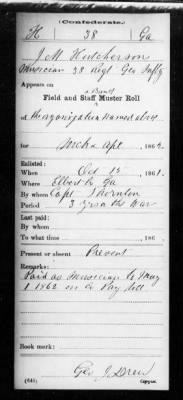 (Confederate.)
H 38 Ga
J. M. Hutcherson
Musician 38 Regt Geo Inffy
Appears on
Field and Staff Muster Roll
of the organization named above
for March & Apl, 1862.
Enlisted:
When Oct 15, 1861.
Where Elbert Co Ga
By whom Capt Thornton
Period 3 yrs or the War
Last paid:
By whom
To what time , 186 .
Present or absent Present
Remarks:
Paid as Musician to May
1 1862 on Co Pay Roll
Book mark:
Geo J. Drew
(646) Copyist.